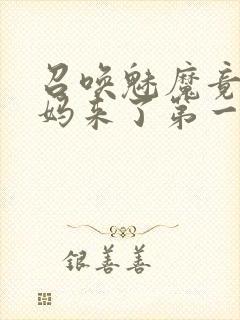 召唤魅魔竟
妈来了第一
银善善